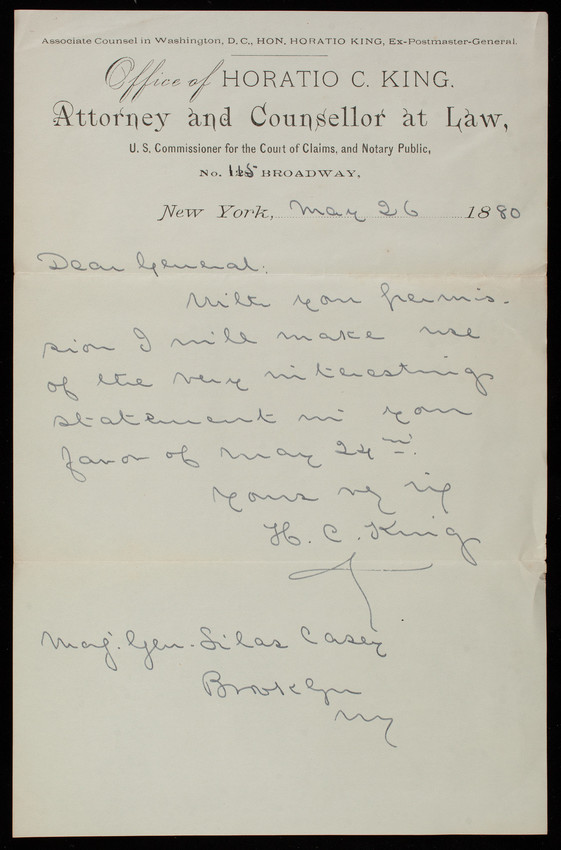 Associate Counsel in Washington, D. C., HON. HORATIO KING, Ex-Postmaster-General.
Office of HORATIO C. KING.
Attorney and Counsellor at Law,
U. S. Commissioner for the Court of Claims, and Notary Public,
No. BROADWAY,
New York, May 26 1880
Dear General:
With your permis-
sion I will make use
of the very interesting
statement in your
favor of May 24th.
Yours
H. C. King
Maj. Gen. Silas Casey
Brooklyn
NY